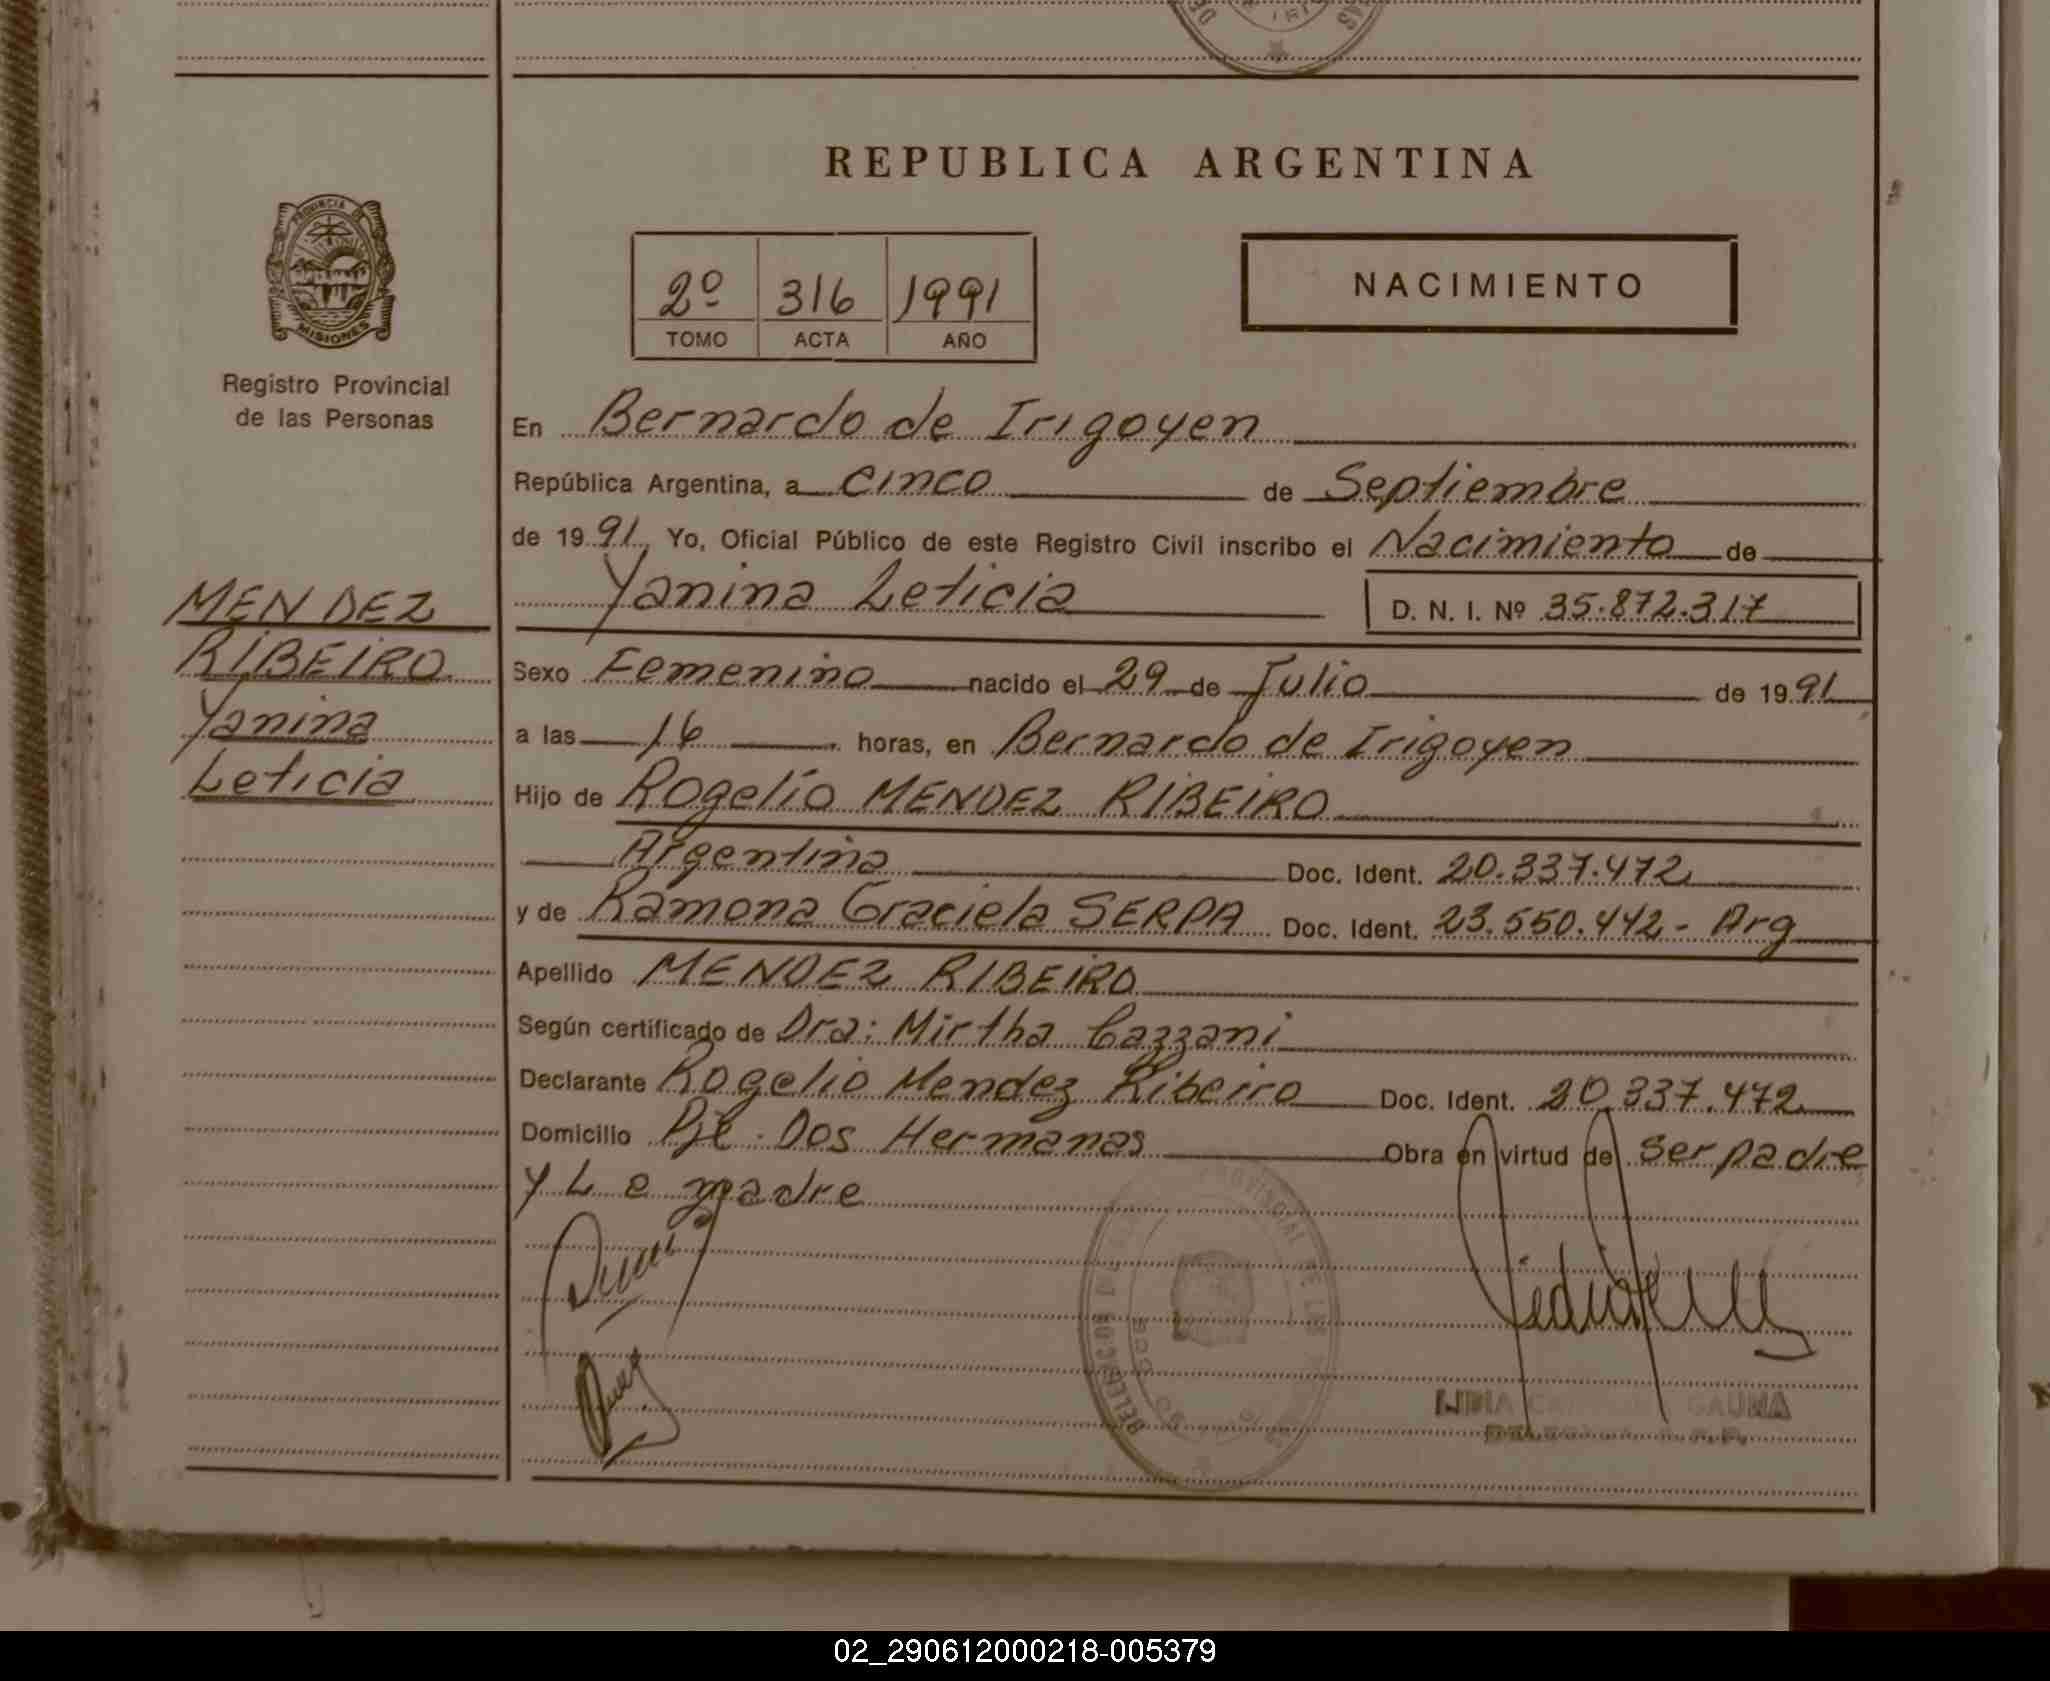 REPUBLICA ARGENTINA
PROVINCIA DE
MISIONES
Registro Provincial
de las Personas
2º 316 1991
TOMO ACTA AÑO
NACIMIENTO
En Bernardo de Irigoyen
República Argentina, a cinco de Septiembre
de 1991 Yo, Oficial Público de este Registro Civil inscribo el Nacimiento de
Yanina Leticia D. N. I. Nº 35.872.317
MENDEZ
RIBEIRO
Yanina
Leticia
Sexo Femenino nacido el 29 de Julio de 1991
a las 16 horas, en Bernardo de Irigoyen
Hijo de Rogelio MENDEZ RIBEIRO
Argentina Doc. Ident. 20.337.472
y de Ramona Graciela SERPA Doc. Ident. 23.550.442- Arg
Apellido MENDEZ RIBEIRO
Según certificado de Dra: Mirtha Cazzani
Declarante Rogelio Mendez Ribeiro Doc. Ident. 20.337.472
Domicilio Pje. Dos Hermanas Obra en virtud de ser padre
y L e madre
PROVINCIAL DE LAS
LIDIA GAUNA
02_290612000218-005379